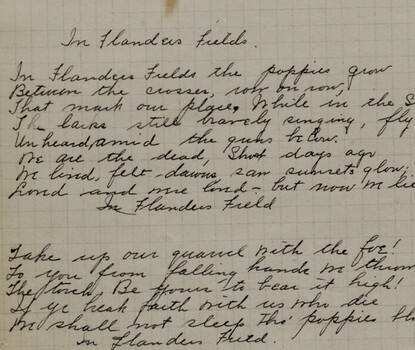 In Flanders Fields.
In Flanders Fields the poppies grow
Between the crosses, row on row,
That mark our place, While in the S
The larks still bravely singing, fly
Unheard, amid the guns below.
We are the dead, Short days ago
We lived, felt dawns, saw sunsets glow,
Loved and were loved - but now we lie
In Flanders Field
Take up our quarrel with the foe!
To you from falling hands we throw
The torch, Be yours to bear it high!
If ye break faith with us who die
We shall not sleep tho' poppies blo
In Flanders Field.